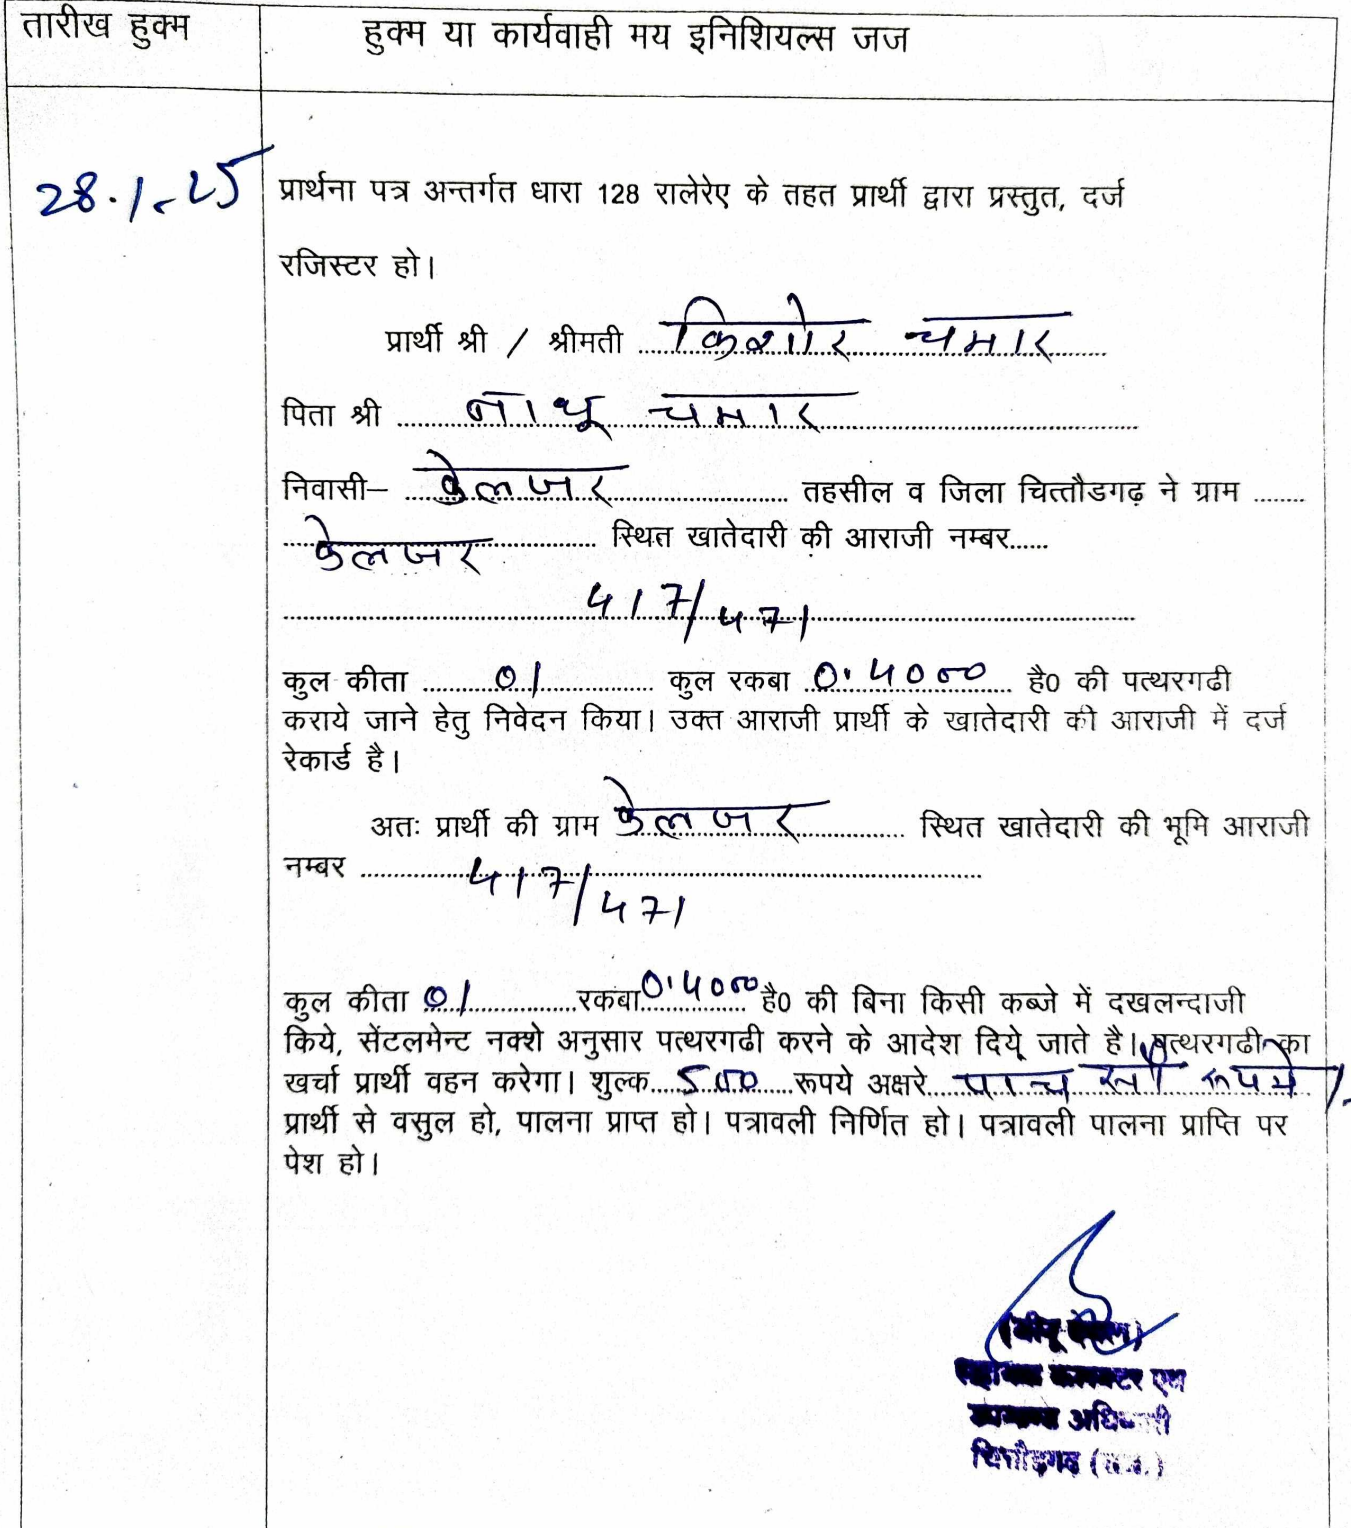 तारीख हुक्म
हुक्म या कार्यवाही मय इनिशियल्स जज
28.1.25
प्रार्थना पत्र अन्तर्गत धारा 128 रालेरेए के तहत प्रार्थी द्वारा प्रस्तुत, दर्ज
रजिस्टर हो।
प्रार्थी श्री / श्रीमती किशोर चमार
पिता श्री नाथू चमार
निवासी– केलजर तहसील व जिला चित्तौडगढ़ ने ग्राम
केलजर स्थित खातेदारी की आराजी नम्बर
417/471
कुल कीता 01 कुल रकबा 0.4000 है0 की पत्थरगढी
कराये जाने हेतु निवेदन किया। उक्त आराजी प्रार्थी के खातेदारी की आराजी में दर्ज
रेकार्ड है।
अतः प्रार्थी की ग्राम केलजर स्थित खातेदारी की भूमि आराजी
नम्बर 417/471
कुल कीता 01 रकबा 0.4000 है0 की बिना किसी कब्जे में दखलन्दाजी
किये, सेंटलमेन्ट नक्शे अनुसार पत्थरगढी करने के आदेश दिये जाते है। पत्थरगढी का
खर्चा प्रार्थी वहन करेगा। शुल्क 500 रूपये अक्षरे पांच सौ रूपये/-
प्रार्थी से वसुल हो, पालना प्राप्त हो। पत्रावली निर्णित हो। पत्रावली पालना प्राप्ति पर
पेश हो।
कलक्टर एवं
उपखण्ड अधिकारी
चित्तौड़गढ़ (राज.)